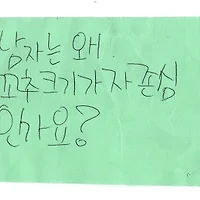 남자는 왜
꼬추크기가 자존심
인가요?